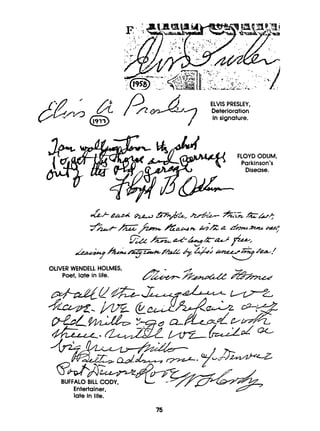 F
Elvis Presley
1958
Elvis A Presley
1977
ELVIS PRESLEY,
Deterioration
in signature.
I am walking down the
to get the horse and carriage
out of the old garage
Floyd B Odum
FLOYD ODUM,
Parkinson's
Disease.
Let each new temple, nobler than the last,
Shut thee from Heaven with a dome more vast,
Till thou at length art free,
Leaving thine outgrown shell by Life's unresting sea!
OLIVER WENDELL HOLMES,
Poet, late in life.
Oliver Wendell Holmes
at all the we
have. We Can't repair our
old mills go ahead with
these. Until we build a
big new mills
Better address me. c/o Denver
Post Denver Colo
BUFFALO BILL CODY,
Entertainer,
late in life.
WF Cody
75